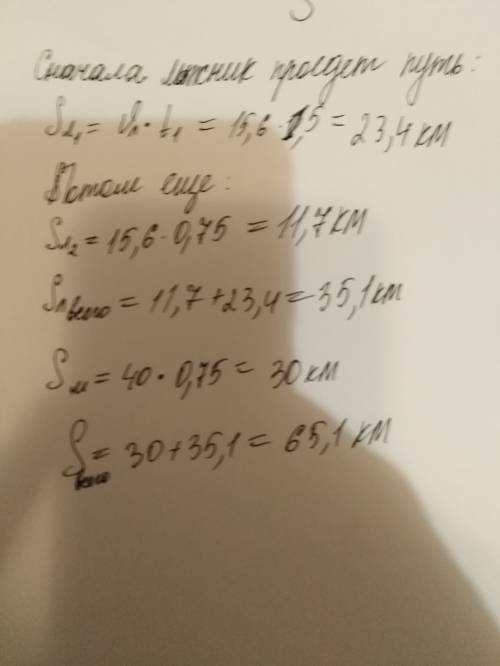 Сначала лыжник пройдет путь:
Sл₁ = Vл · t₁ = 15,6 · 1,5 = 23,4 км
Потом еще:
Sл₂ = 15,6 · 0,75 = 11,7 км
Sл всего = 11,7 + 23,4 = 35,1 км
Sм = 40 · 0,75 = 30 км
S всего = 30 + 35,1 = 65,1 км